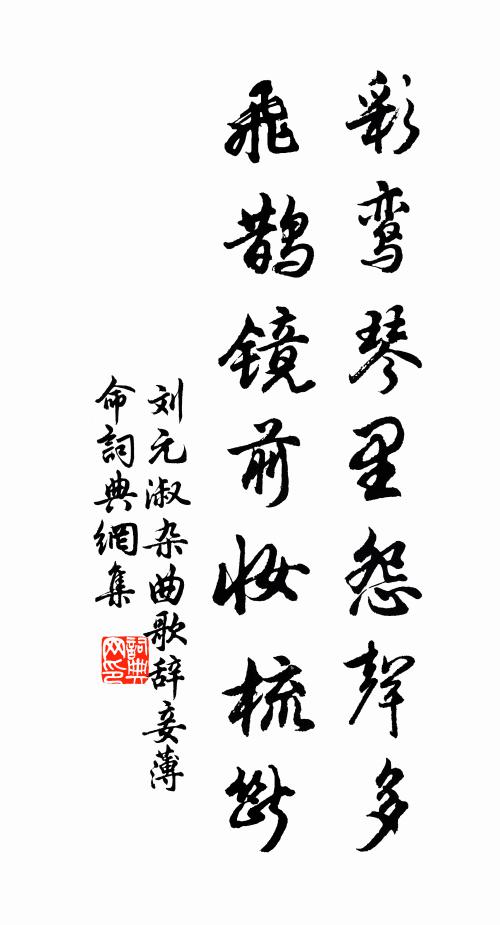 彩鸾琴里怨聲多
飛鹊镜前妆梳断
刘元淑杂曲歌辞妾薄
命詞典網集
詞典
网印